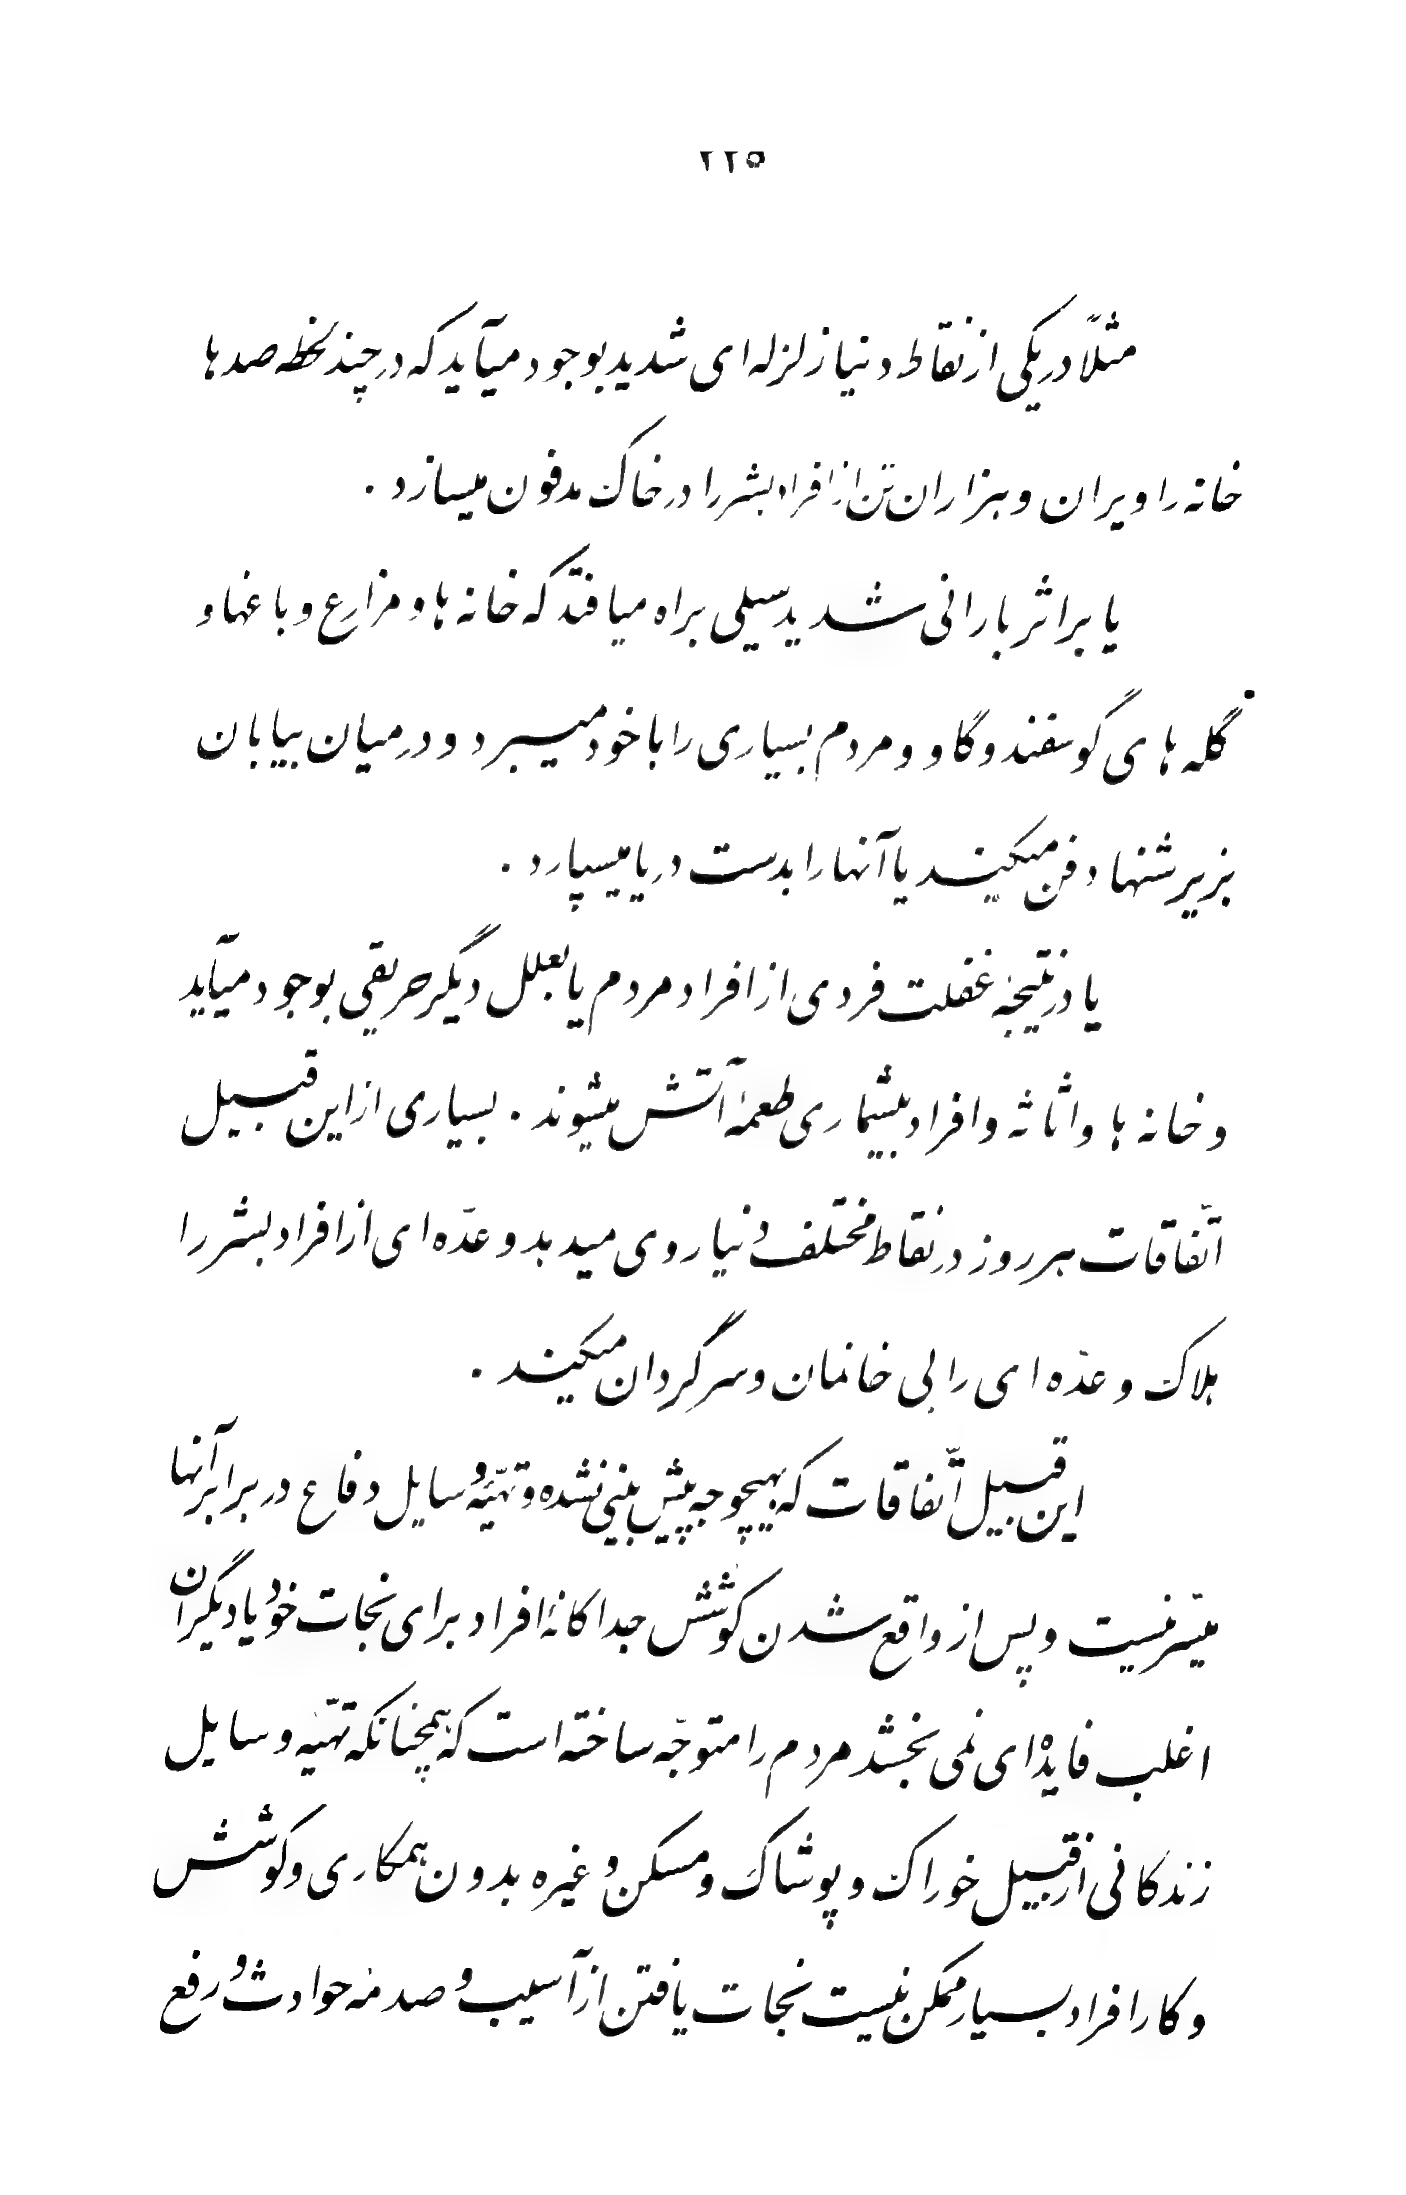 ۲۲۵
مثلاً در یکی از نقاط دنیا زلزله ای شدید بوجود میآید که در چند لحظه صدها
خانه را ویران و هزاران تن از افراد بشر را در خاک مدفون میسازد .
یا بر اثر بارانی شدید سیلی براه میافتد که خانه ها و مزارع و باغها و
گله های گوسفند و گاو و مردم بسیاری را با خود میبرد و در میان بیابان
بزیر شنها دفن میکند یا آنها را بدست دریا میسپارد .
یا در نتیجهٔ غفلت فردی از افراد مردم یا بعلل دیگر حریقی بوجود میآید
و خانه ها و اثاثه و افراد بیشماری طعمهٔ آتش میشوند . بسیاری از این قبیل
اتّفاقات هر روز در نقاط مختلف دنیا روی میدهد و عدّه ای از افراد بشر را
هلاک و عدّه ای را بی خانمان و سرگردان میکند .
این قبیل اتّفاقات که بهیچوجه پیش بینی نشده و تهیّهٔ وسایل دفاع در برابر آنها
میّسر نیست و پس از واقع شدن کوشش جداگانهٔ افراد برای نجات خود یا دیگران
اغلب فایده ای نمی بخشد مردم را متوجّه ساخته است که همچنانکه تهیّهٔ وسایل
زندگانی از قبیل خوراک و پوشاک و مسکن و غیره بدون همکاری و کوشش
و کار افراد بسیار ممکن نیست نجات یافتن از آسیب و صدمهٔ حوادث و رفع